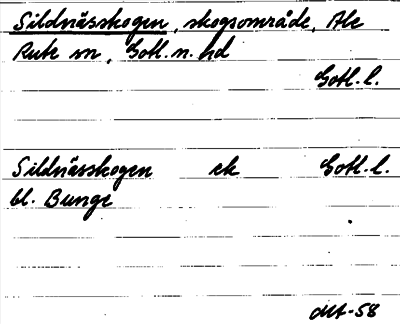 Sildnässkogen, skogsområde, Ale
Rute sn, Gotl. n. hd
Gotl. l.
Sildnässkogen ek Gotl. l.
bl. Bunge